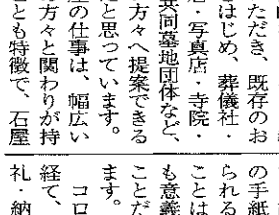 ただき、既存のお
はじめ、葬儀社・
店・写真店・寺院・
共同墓地団体など、
方々へ提案できる
と思っています。
屋の仕事は、幅広い
方々と関わりが持
とも特徴で、石屋
の手紙
られる
ことは
も意義
ことだ
ます。
コロ
経て、
礼・納